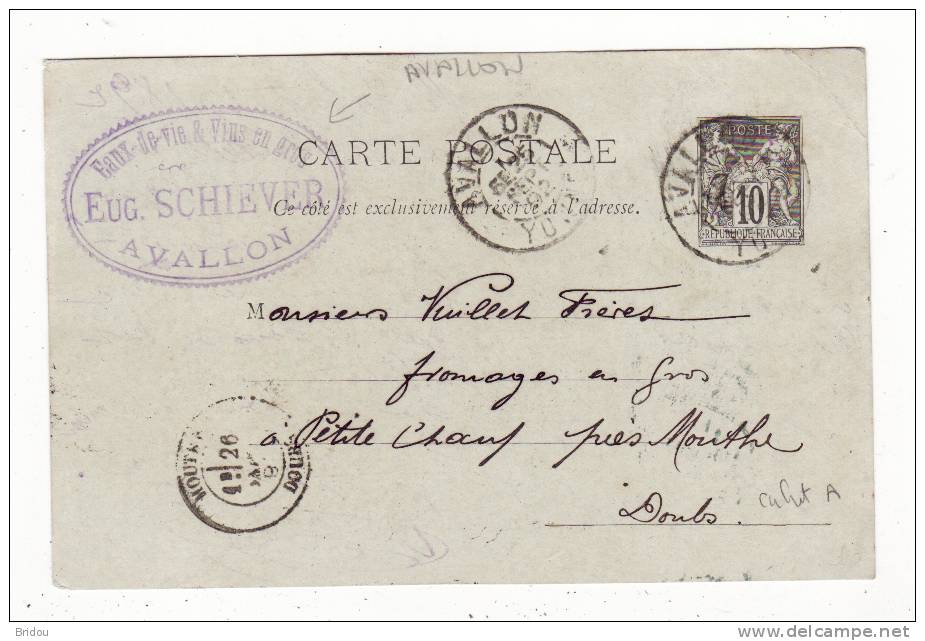 AVALLON
Eaux-de-vie & Vins en gros
EUG. SCHIEVER
AVALLON
CARTE POSTALE
Ce côté est exclusivement réservé à l'adresse.
AVALLON
YO
POSTE
10
REPUBLIQUE FRANÇAISE
AVAL
YO
Monsieurs Vuillet Frères
fromages en Gros
à Petite Chaux près Mouthe
Doubs.
MOUTHE
26
DOUBS
cachet A
Bridou
delcampe.net